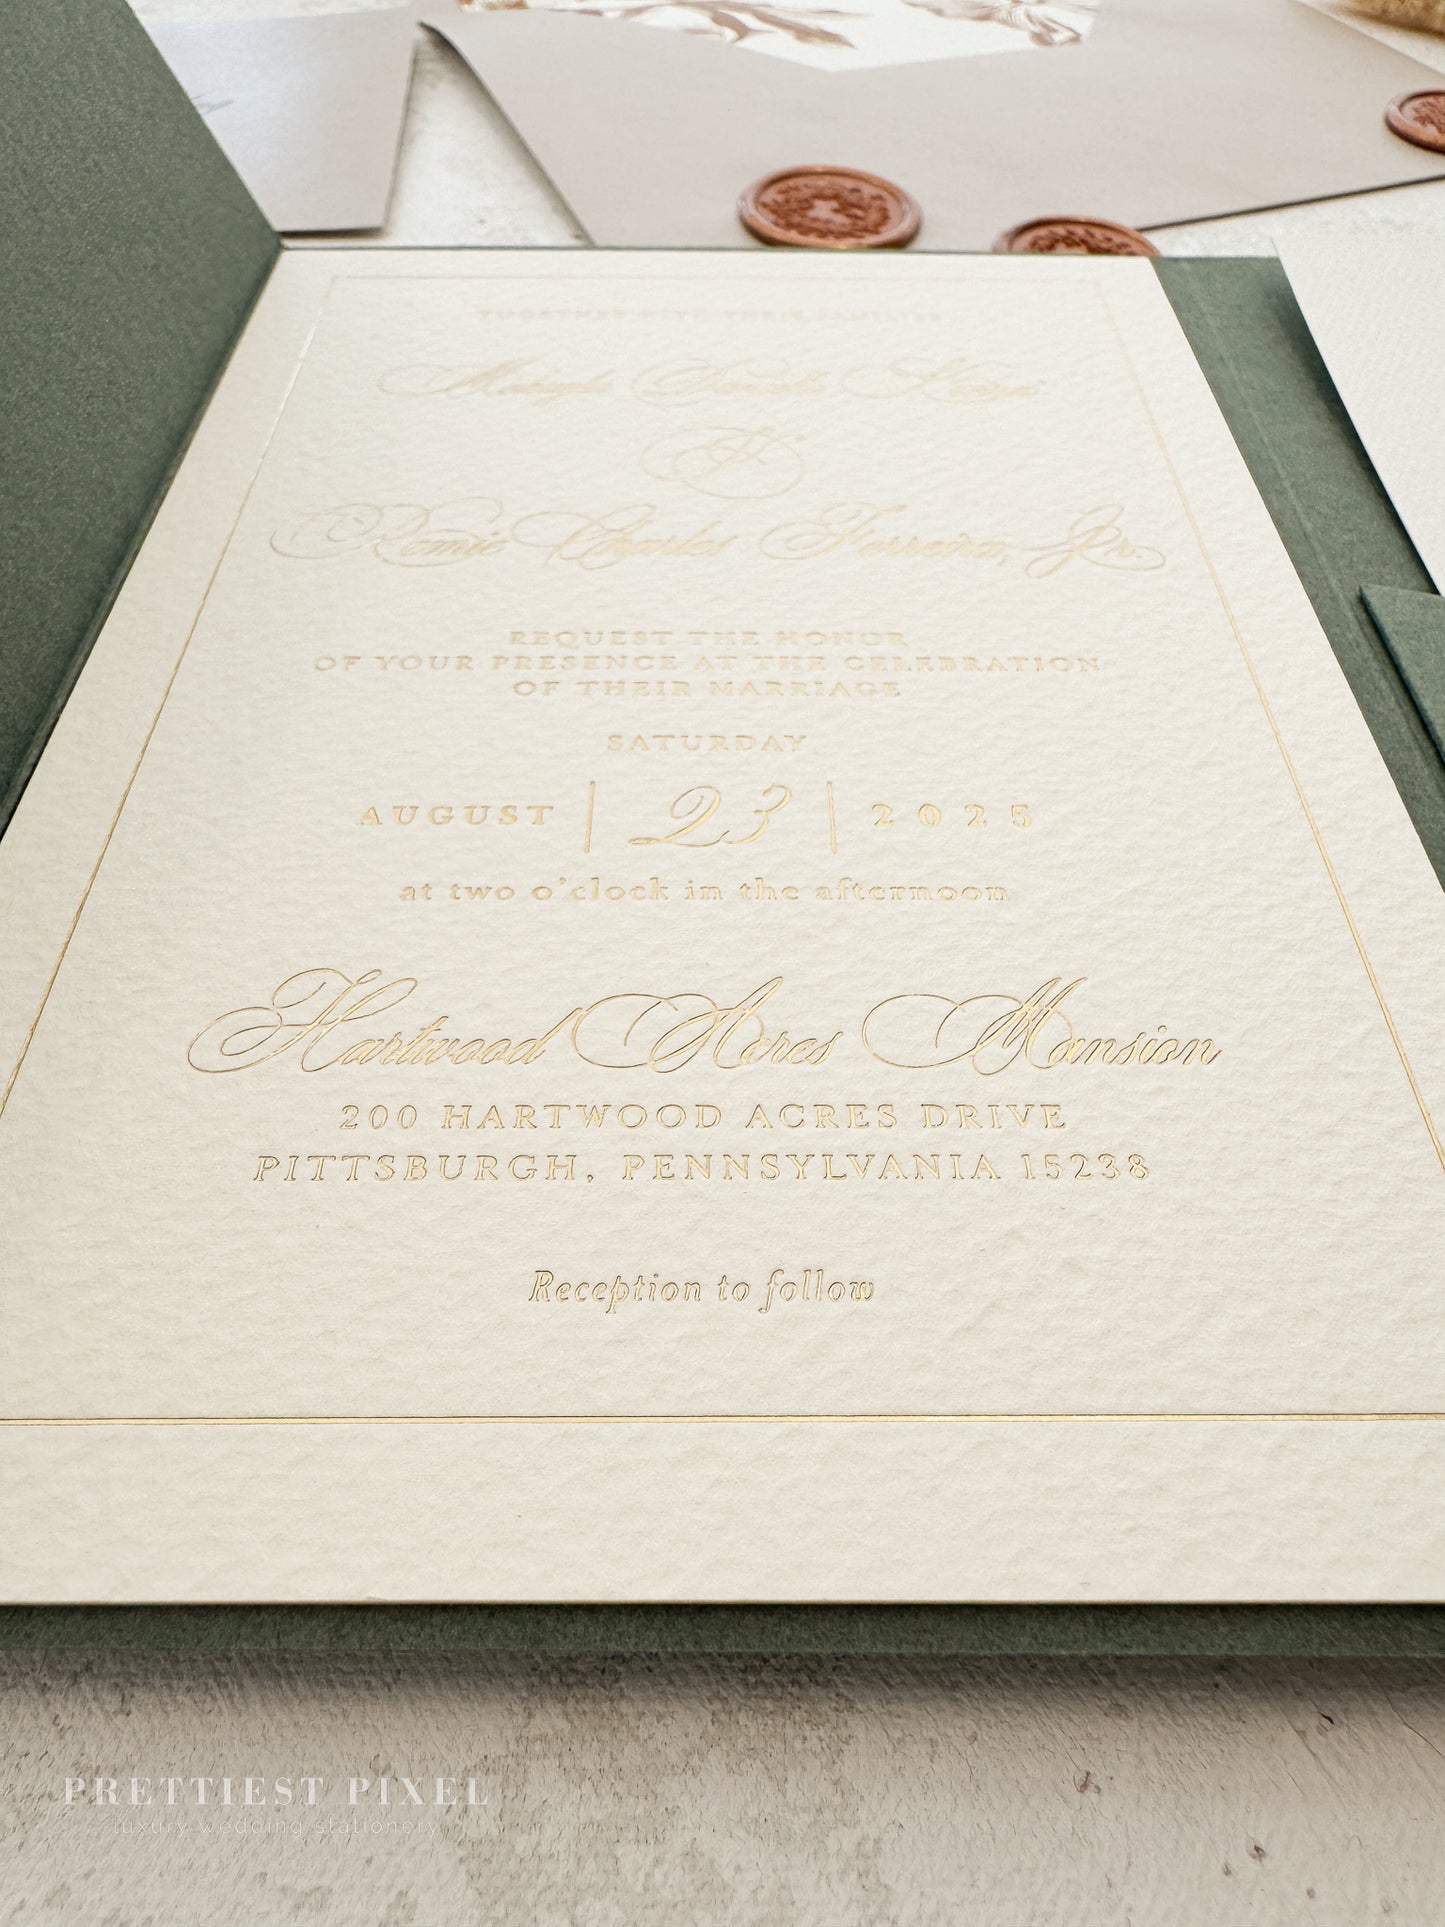 TOGETHER WITH THEIR FAMILIES
&
Romie Charles Ferreira, Jr.
REQUEST THE HONOR
OF YOUR PRESENCE AT THE CELEBRATION
OF THEIR MARRIAGE
SATURDAY
AUGUST | 23 | 2025
at two o'clock in the afternoon
Hartwood Acres Mansion
200 HARTWOOD ACRES DRIVE
PITTSBURGH, PENNSYLVANIA 15238
Reception to follow
PRETTIEST PIXEL
luxury wedding stationery